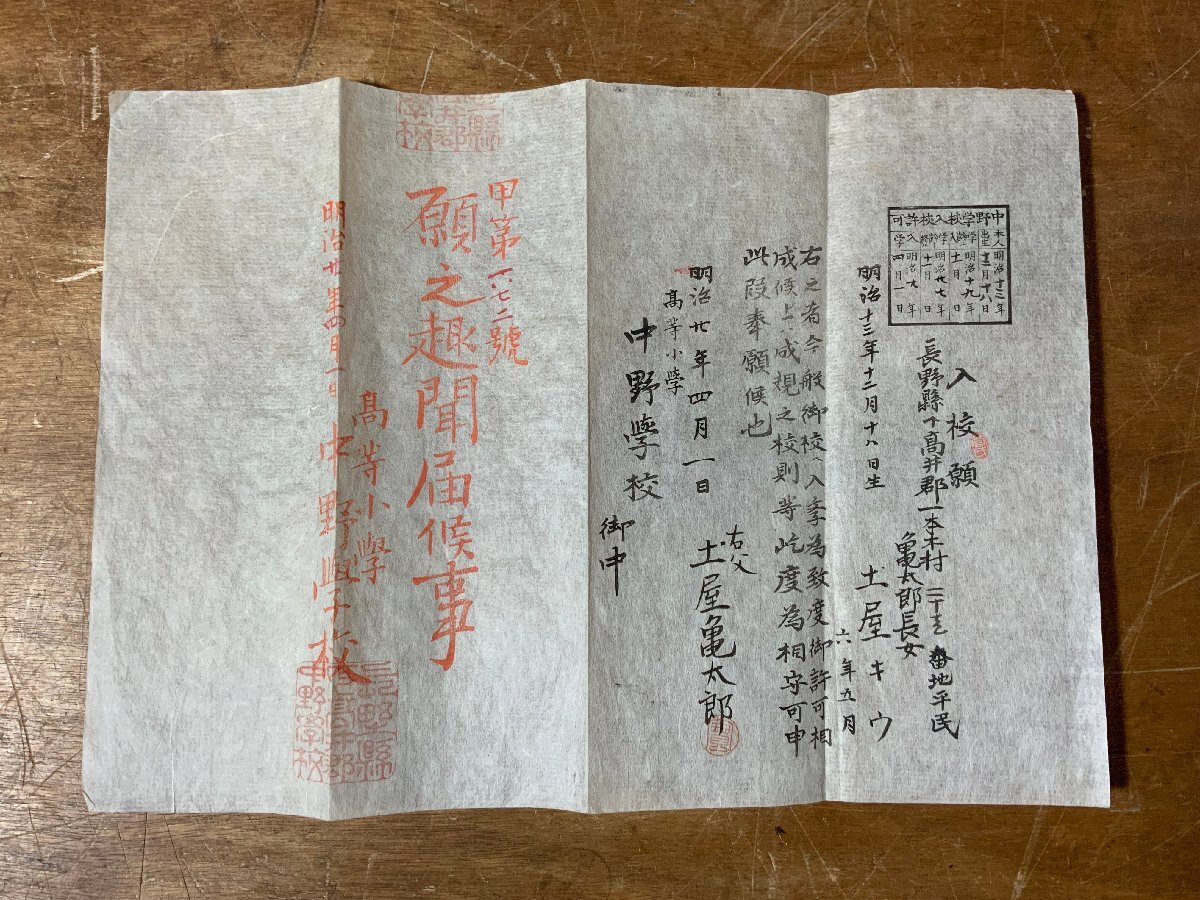 入校願
長野縣下高井郡一本木村 三十壱 番地平民
亀太郎長女
土屋キウ
明治十三年十二月十八日生
六年五月
右之者今般御校ヘ入季為致度御許可相
成候上ハ成規之校則等屹度為相守可申
此段奉願候也
明治廿年四月一日
右父
土屋亀太郎
高等小学
中野學校
御中
甲第一六七二號
願之趣聞届候事
明治廿年四月一日
高等小學
中野學校